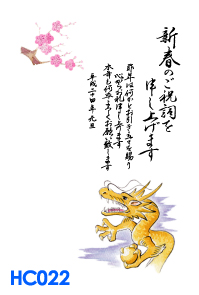 新春のご祝詞を
申し上げます
昨年は何かとお引き立てを賜り
心からお礼申し上げます
本年も何卒よろしくお願い致します
平成二十四年 元旦
HC022